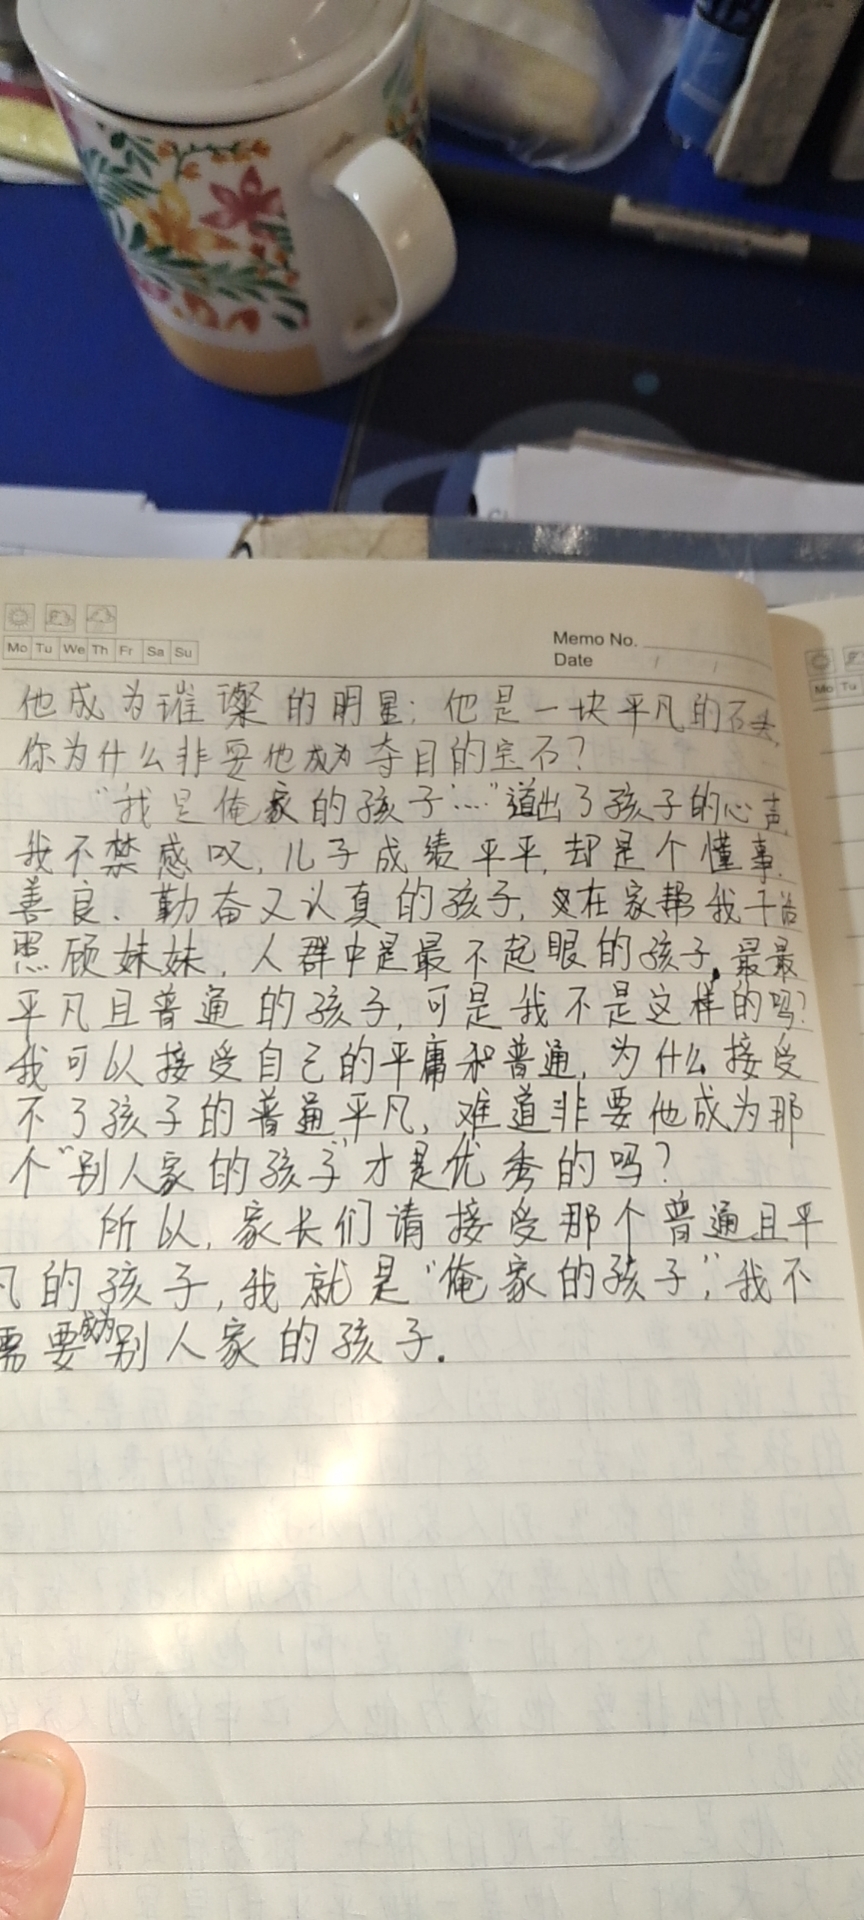 Memo No.
Mo Tu We Th Fr Sa Su
Date / /
Mo Tu
他成为璀璨的明星；他是一块平凡的石头，
你为什么非要他成为夺目的宝石？
“我是俺家的孩子……”道出了孩子的心声，
我不禁感叹，儿子成绩平平，却是个懂事、
善良、勤奋又认真的孩子，在家帮我干活
照顾妹妹，人群中是最不起眼的孩子，最最
平凡且普通的孩子，可是我不是这样的吗？
我可以接受自己的平庸和普通，为什么接受
不了孩子的普通平凡，难道非要他成为那
个“别人家的孩子”才是优秀的吗？
所以，家长们请接受那个普通且平
凡的孩子，我就是“俺家的孩子”，我不
需要成为别人家的孩子.